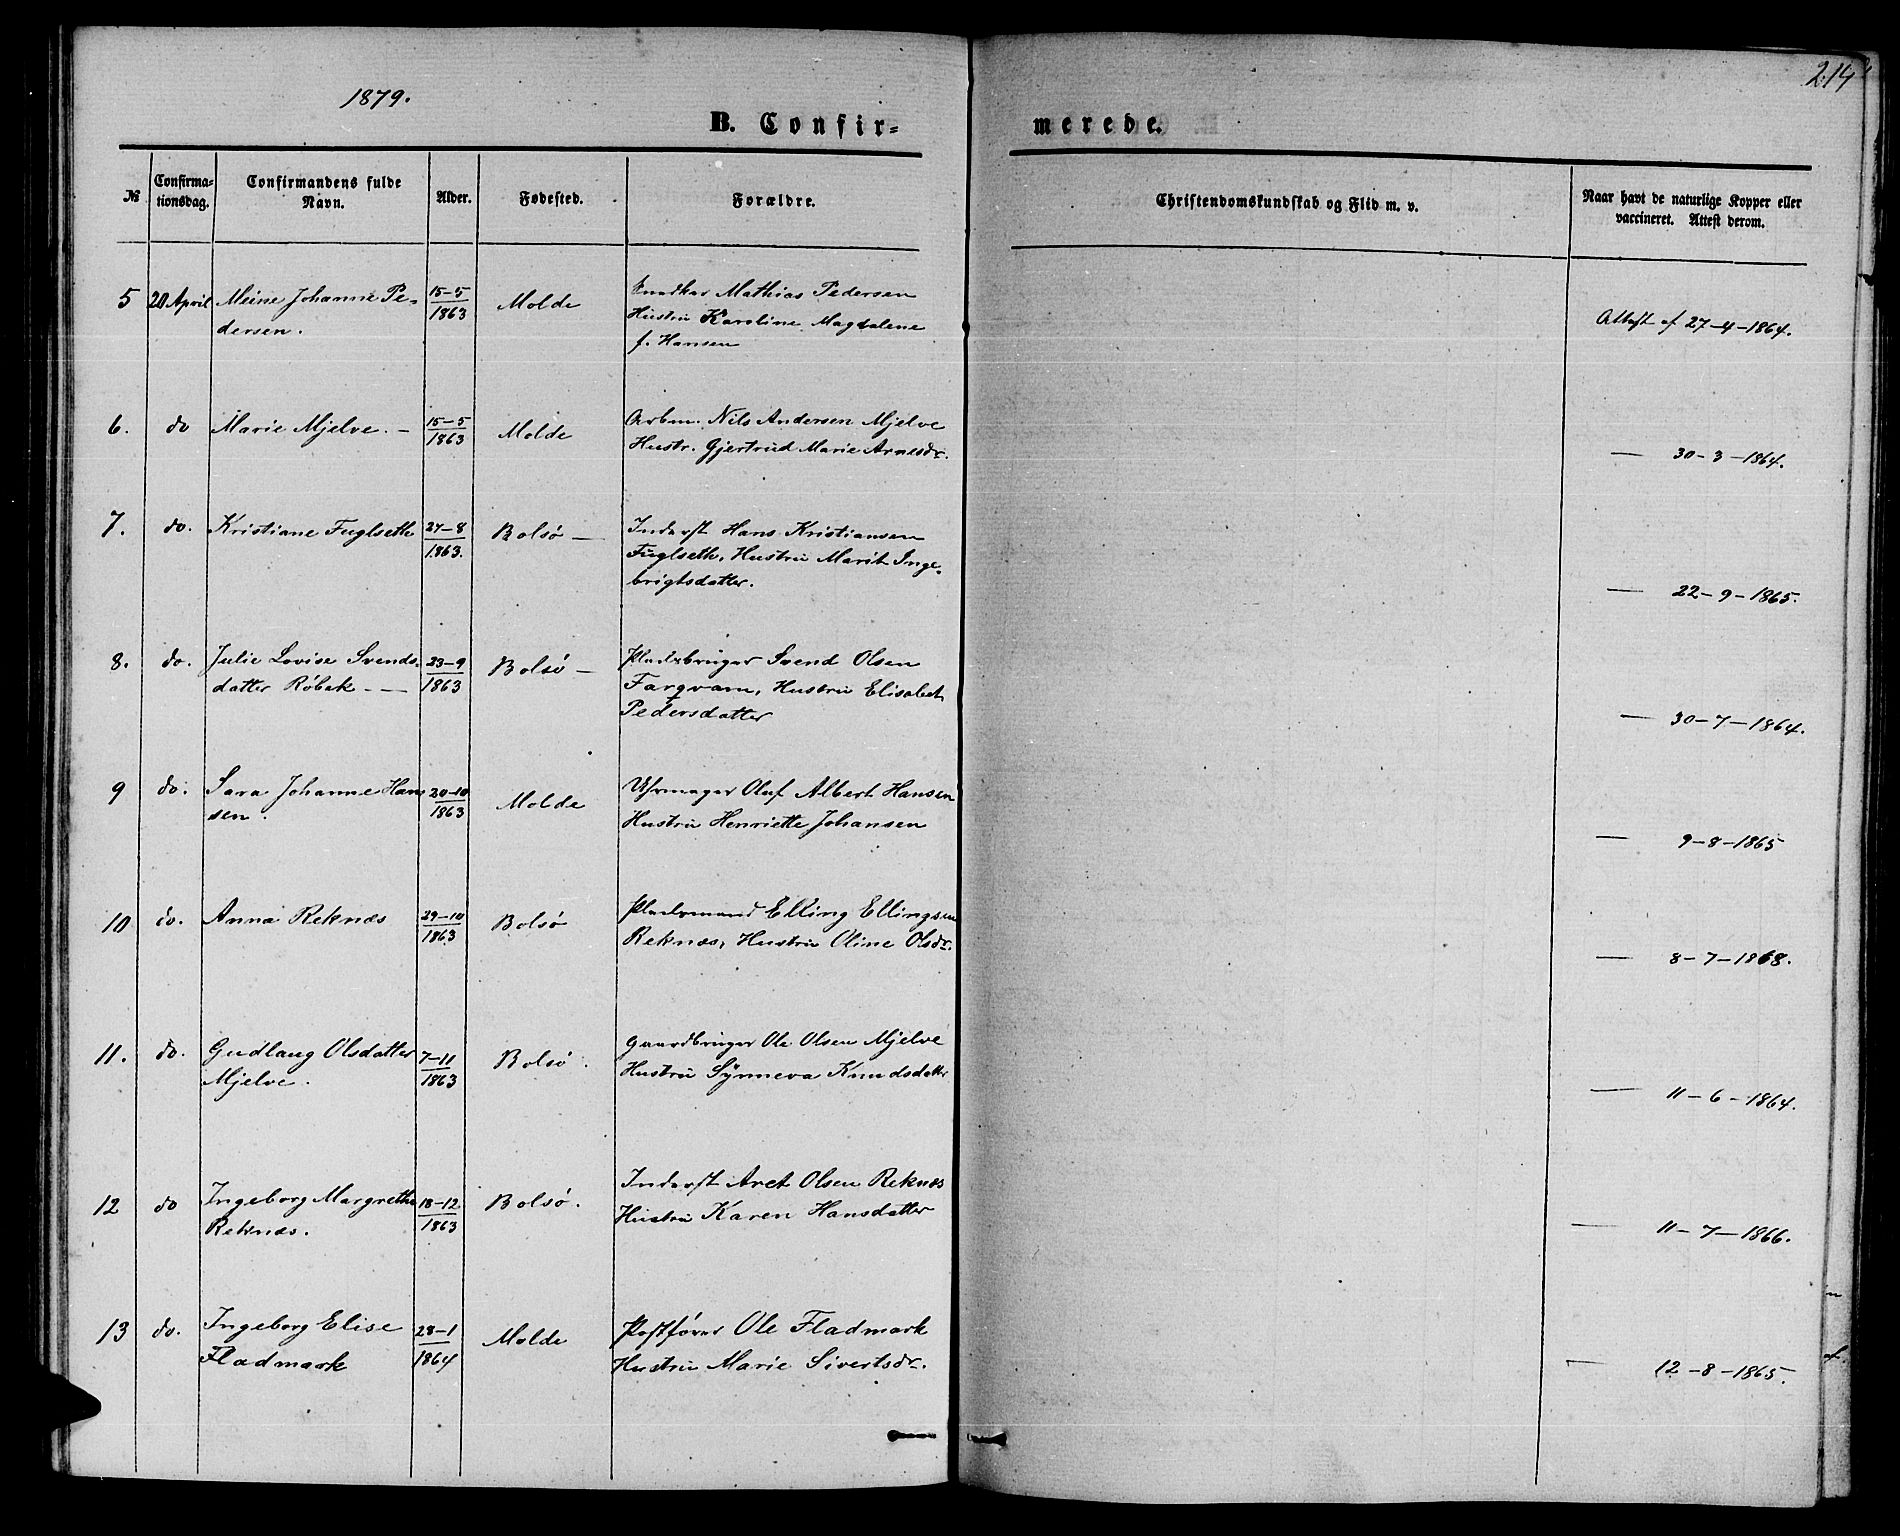 1879.
214
B. Confir=
merede.
№
Confirma=
tionsdag.
Confirmandens fulde
Navn.
Alder.
Fødested.
Forældre.
Christendomskundskab og Flid m. v.
Naar havt de naturlige Kopper eller
vaccineret. Attest derom.
5 20 April Meine Johanne Pe- 15-5 Molde Snedker Mathias Pedersen
dersen. 1863 Hustru Karoline Magdalene Attest af 27-4-1864.
f. Hansen
6. do Marie Mjelve. – 15-5 Molde Arbm. Nils Andersen Mjelve
1863 Hustr. Gjertrud Marie Arnesdr. — 30-3-1864.
7. do. Kristiane Fuglseth 27-8 Bolsø — Inderst Hans Kristiansen
1863. Fuglseth, Hustru Marit Inge-
brigtsdatter. — 22-9-1865.
8. do. Julie Lovise Svends- 23-9 Bolsø – Pladsbruger Svend Olsen
datter Røbek – — 1863 Farqvam, Hustru Elisabet
Pedersdatter — 30-7-1864.
9 do. Sara Johanne Han 20-10 Molde Uhrmager Oluf Albert Hansen
sen. 1863 Hustru Henriette Johansen — 9-8-1865
10 do. Anna Reknæs 29-10 Bolsø Pladsmand Elling Ellingsen
1863 Reknæs, Hustru Oline Olsdr. — 8-7-1868.
11. do. Gudlaug Olsdatter 7-11 Bolsø. Gaardbruger Ole Olsen Mjelve
Mjelve. 1863 Hustru Synneva Knudsdatter — 11-6-1864.
12 do Ingeborg Margrethe 18-12 Bolsø. Inderst Aret Olsen Reknæs
Reknæs. 1863 Hustru Karen Hansdatter — 11-7-1866.
13 do. Ingeborg Elise 28-1 Molde Postfører Ole Fladmark
Fladmark 1864 Hustru Marie Sivertsdr. — 12-8-1865.